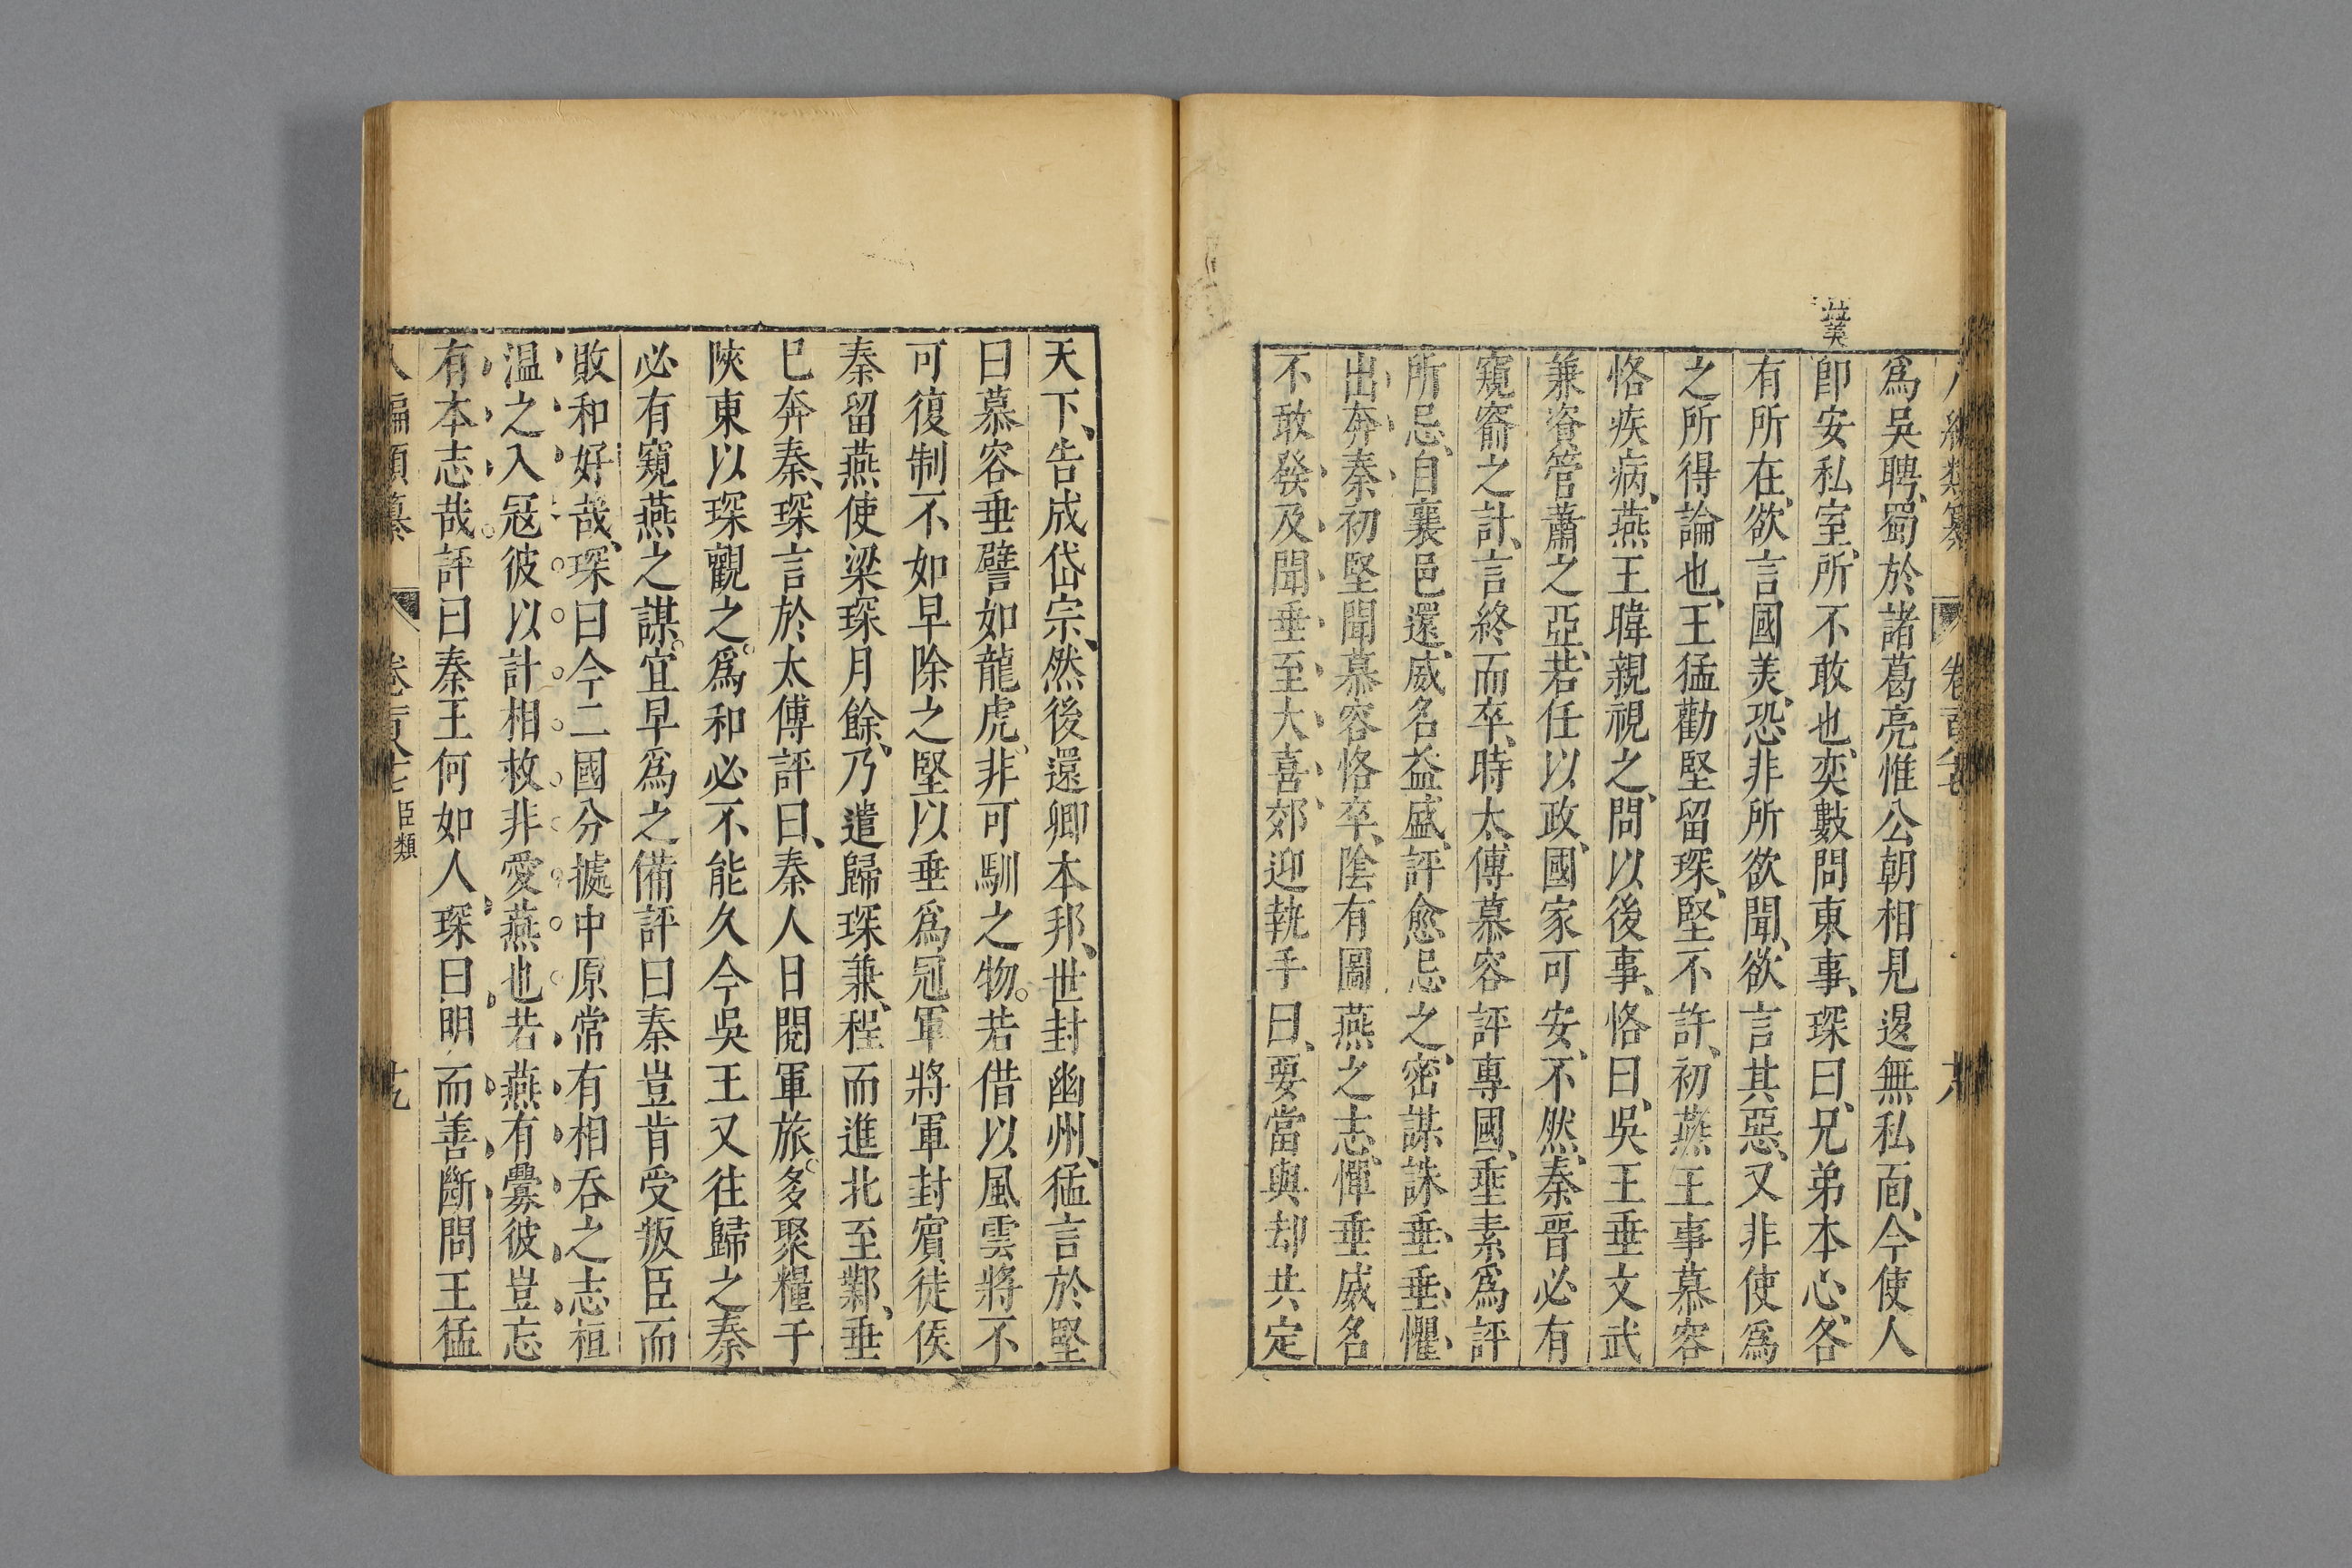 爲吳聘、蜀於諸葛亮惟公朝相見退無私面、今使人
卽安私室、所不敢也、奕數問東事、琛曰、兄弟本心、各
有所在、欲言國美、恐非所欲聞、欲言其惡、又非使爲
之所得論也、王猛勸堅留琛、堅不許、初燕王事慕容
恪疾病、燕王暐親視之、問以後事、恪曰、吳王垂文武
兼資管蕭之亞、若任以政、國家可安、不然、秦晉必有
窺窬之計、言終而卒、時太傅慕容評專國、垂素爲評
所忌、自襄邑還、威名益盛、評愈忌之、密謀誅垂、垂、懼、
出奔秦、初堅聞慕容恪卒、陰有圖燕之志、憚垂威名
不敢發及聞垂至大喜郊迎執手曰、要當與却共定
天下、告成岱宗、然後還卿本邦、世封幽州、猛言於堅
曰慕容垂譬如龍虎、非可馴之物。若借以風雲將不
可復制不如早除之堅以垂爲冠軍將軍封賓徒侯
秦留燕使梁琛月餘、乃遣歸琛兼、程而進北至鄴、垂
已奔秦、琛言於太傅評曰、秦人日閱軍旅。多聚糧于
陝東以琛觀之。爲和必不能久今吳王又往歸之秦
必有窺燕之謀。宜早爲之備評曰秦豈肯受叛臣而
敗和好哉、琛曰今二國分據中原常有相吞之志桓
溫之入寇彼以計相救非愛燕也若燕有釁彼豈忘
有本志哉。評曰秦王何如人琛曰明而善斷問王猛
臣類